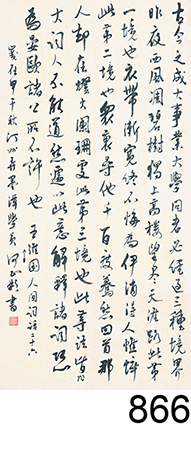 古今之成大事業大學問者必經過三種境界
昨夜西風凋碧樹獨上高樓望盡天涯路此第
一境也衣帶漸寬終不悔為伊消得人憔悴
此第二境也眾裏尋他千百度驀然回首那
人却在燈火闌珊處此第三境也此等語皆非
大詞人不能道然遽以此意解釋諸詞恐
為晏歐諸公所不許也 王維国人間詞話二十六
歲在甲午秋 書
866